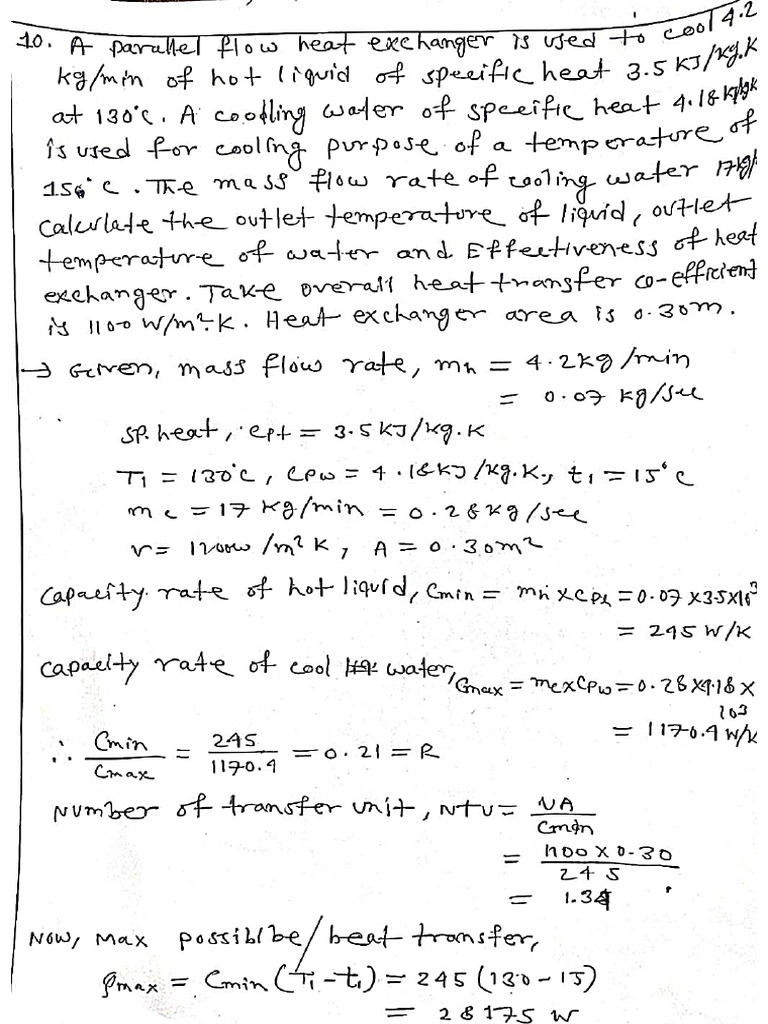 10. A parallel flow heat exchanger is used to cool 4.2
kg/min of hot liquid of specific heat 3.5 KJ/kg.K
at 130°C. A coodling water of specific heat 4.18 KJ/kgK
is used for cooling purpose of a temperature of
15°C. The mass flow rate of cooling water 17kg/
calculate the outlet temperature of liquid, outlet
temperature of water and Effectiveness of heat
exchanger. Take overall heat transfer co-efficient
is 1100 W/m².K. Heat exchanger area is 0.30m.
→ Given, mass flow rate, mh = 4.2kg/min
= 0.07 kg/sec
sp. heat, cph = 3.5 KJ/kg.K
T1 = 130°C, cpw = 4.18KJ/kg.K, t1 = 15°C
mc = 17 kg/min = 0.28kg/sec
U = 1100w/m²K, A = 0.30m²
Capacity rate of hot liquid, Cmin = mh x cph = 0.07 x3.5x10³
= 245 W/K
capacity rate of cool water, Cmax = mcxCpw = 0.28 x4.18 x
10³
= 1170.4 W/K
∴ Cmin/Cmax = 245/1170.4 = 0.21 = R
Number of transfer unit, NTU = UA/Cmin
= 1100 x 0.30/245
= 1.34
Now, Max possiblbe/heat transfer,
Qmax = Cmin (T1-t1) = 245 (130-15)
= 28175 W